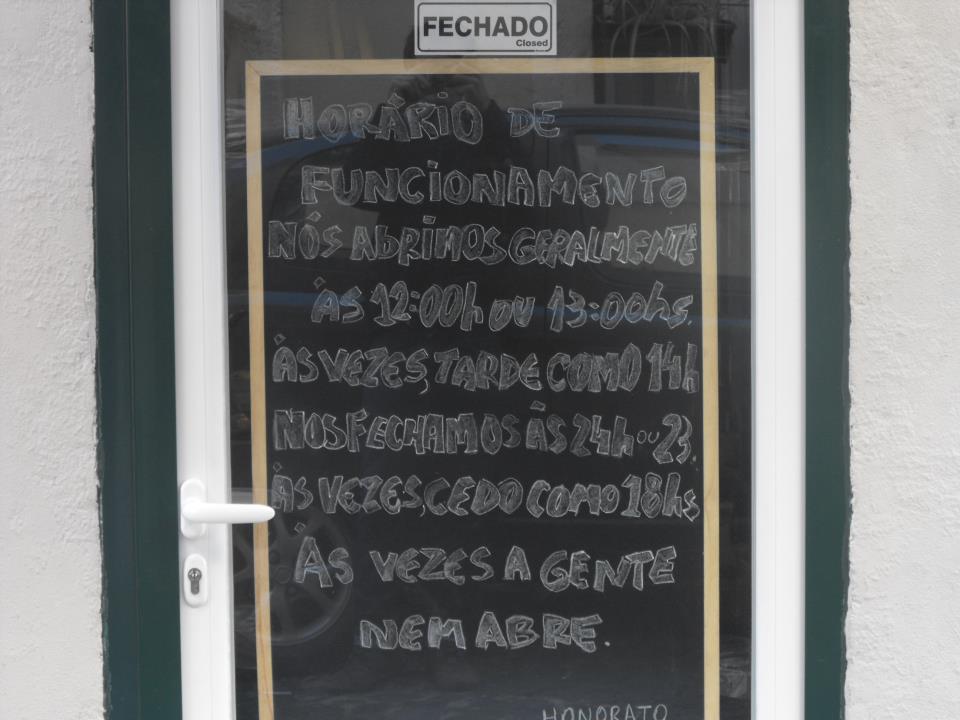 FECHADO
Closed
HORÁRIO DE
FUNCIONAMENTO
NÓS ABRIMOS GERALMENTE
ÀS 12:00h OU 13:00hs.
ÀS VEZES, TARDE COMO 14h
NOS FECHAMOS ÀS 24h ou 23.
ÀS VEZES, CEDO COMO 18hs
ÀS VEZES A GENTE
NEM ABRE.
HONORATO